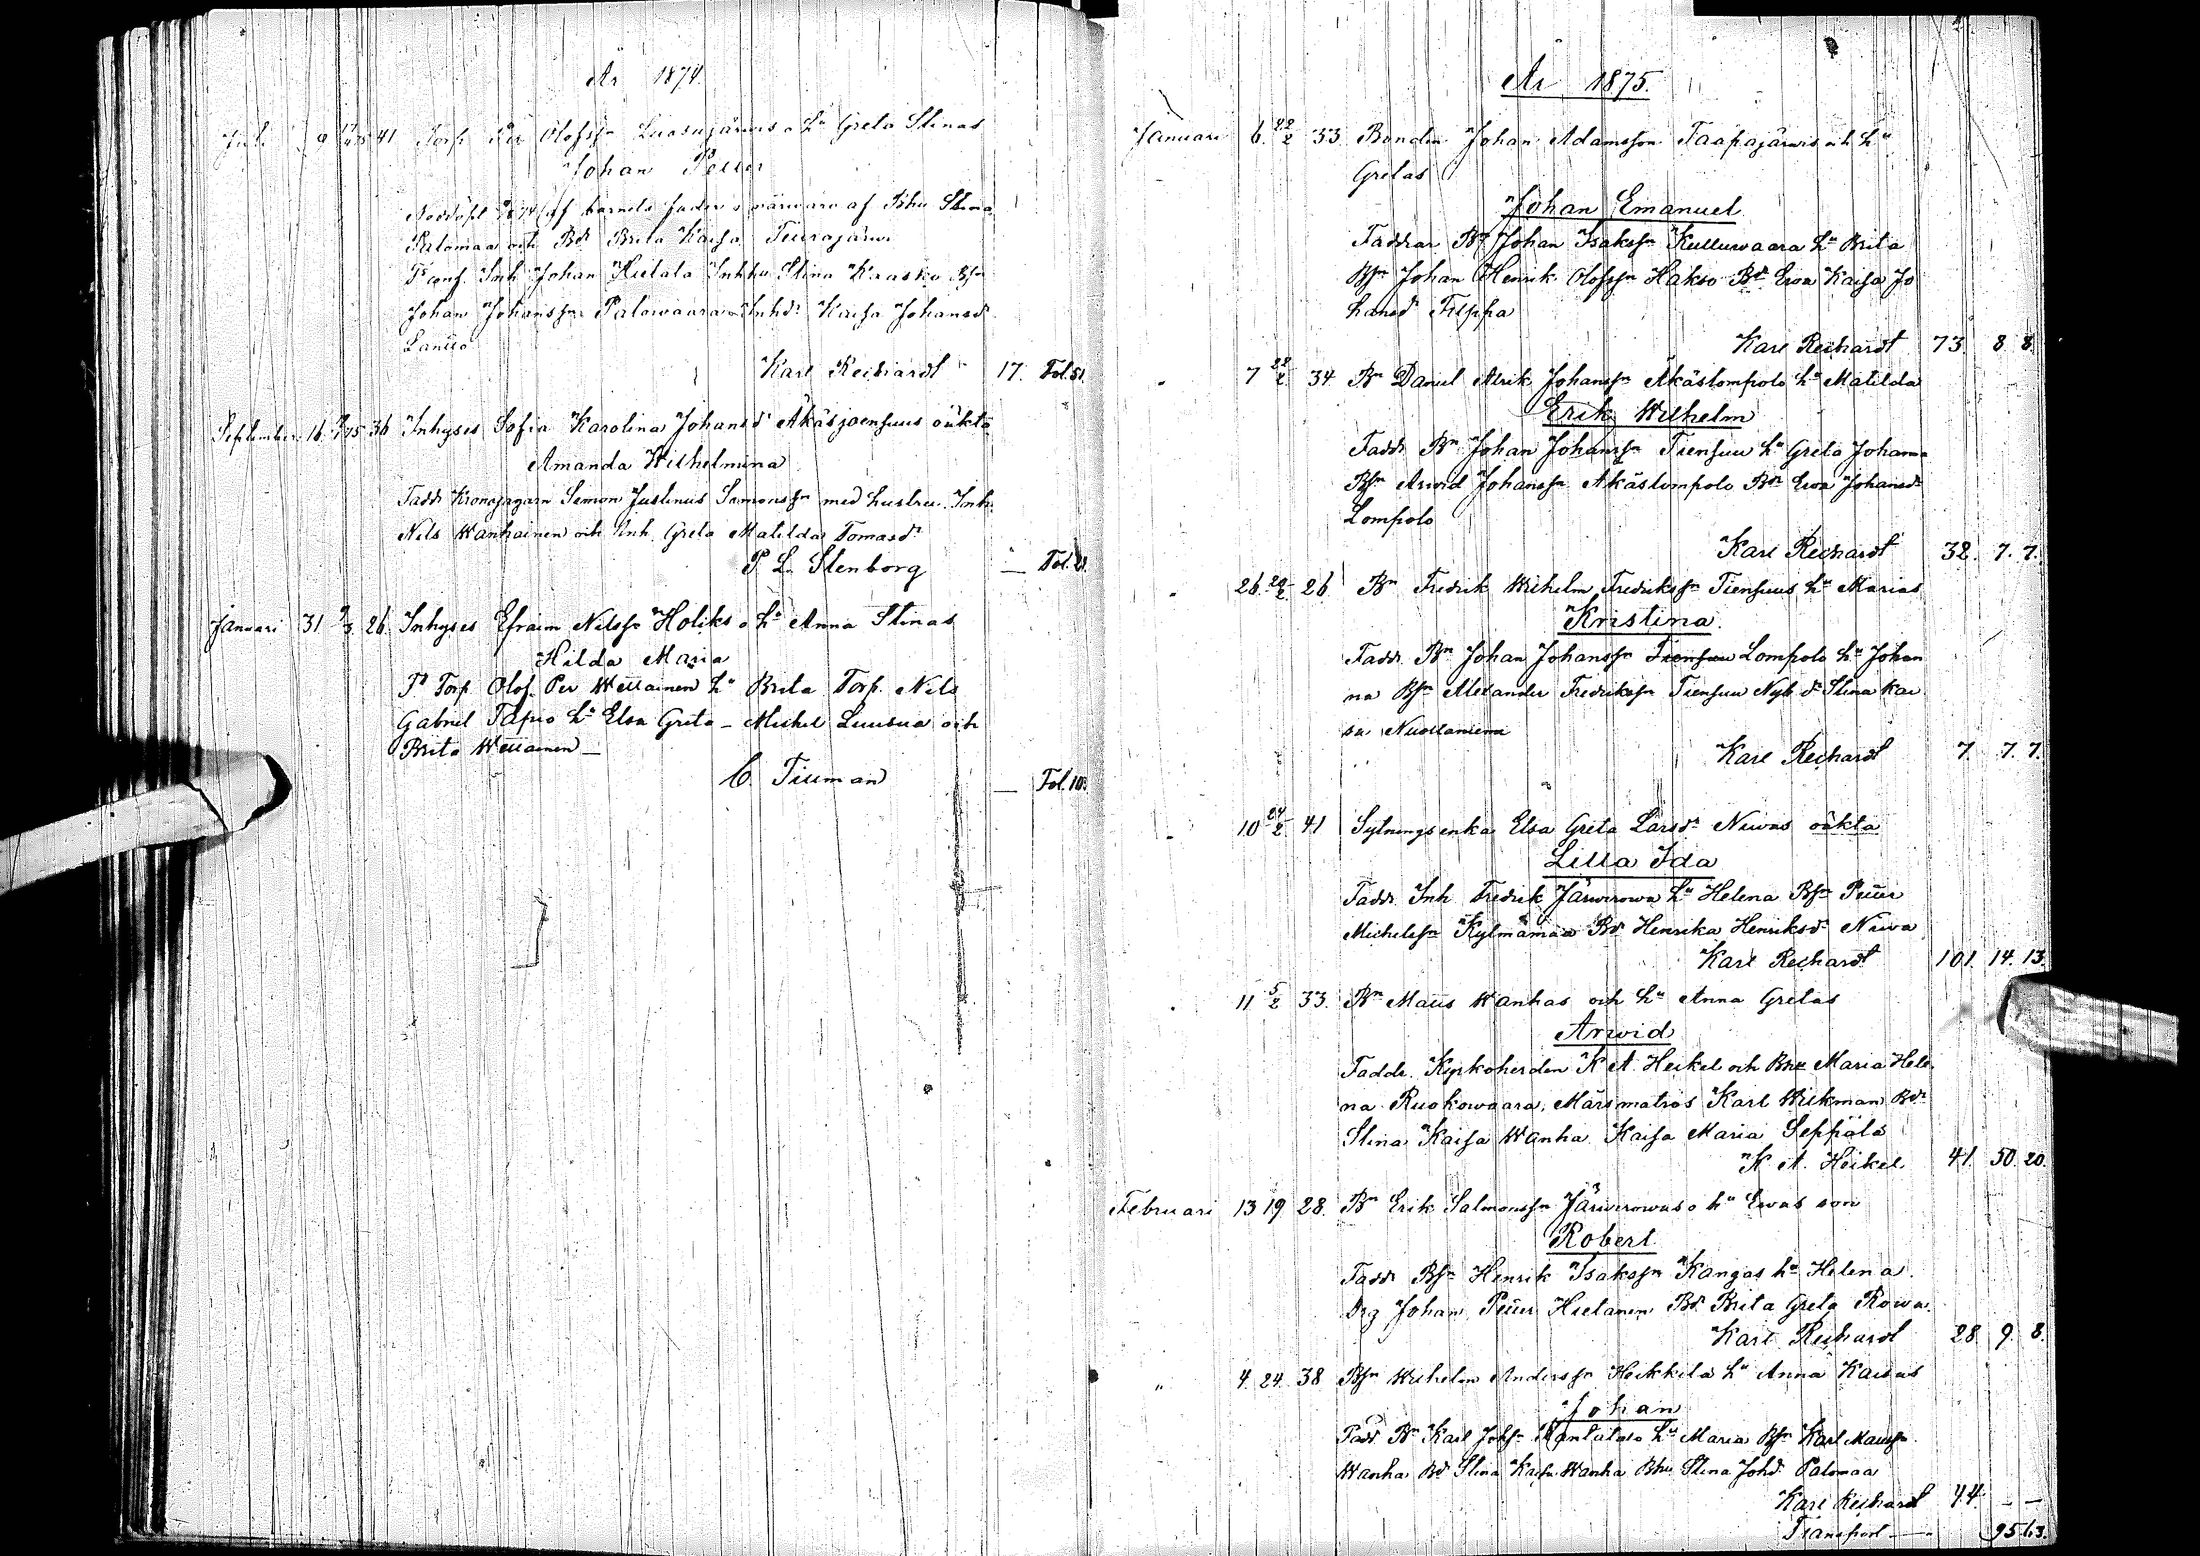 År 1874.
Juli 9 41 Torp. Per Olofssn Luosujärwis o hu Greta Stinas
Johan Petter
Nöddöpt af barnets fader i närwaro af Bhu Stina
Palomaa och Bdr Brita Kaisa Teurajärwi
Tr conf. Inh Johan Hietala Inhhu Stina Krasko Bsn
Johan Johanssn Palowaara Inhdr Kaisa Johansdr
Lanito
Karl Reichardt 17. Fol. 51.
September 16 36 Inhyses Sofia Karolina Johansdr Äkäsjoensuus oäkta
Amanda Wilhelmina
Faddr Kronojägarn Simon Justinus Simonssn med hustru. Inh.
Nils Wanhainen och Inh. Greta Matilda Tomasdr
P. L. Stenborg — Fol. 21.
Januari 31 9/3 26. Inhyses Efraim Nilssn Holiks o hu Anna Stinas
Hilda Maria
Fr Torp. Olof Per Wettainen hu Brita Torp. Nils
Gabriel Tapio hu Elsa Greta — Michel Luusua och
Brita Wettainen —
C. Tiuman — Fol. 10.
År 1875.
Januari 6. 22/2 33 Bonden Johan Adamsson Taapajärwis och hu
Gretas
Johan Emanuel
Faddrar Bn Johan Isakssn Kulluwaara hu Brita
Bsn Johan Henrik Olofssn Hakso Bdr Ewa Kaisa Jo
hansdr Filppa
Karl Reichardt 73. 8 8.
" 7 22/2 34 Bn Daniel Alrik Johanssn Äkäslompolo hu Matilda
Erik Wilhelm
Faddr. Bn Johan Johanssn Tiensuu hu Greta Johanna
Bsn Arwid Johanssn Äkäslompolo Bdr Ewa Johansdr
Lompolo
Karl Reichardt 32. 7. 7.
" 26. 20/2 26. Bn Fredrik Wilhelm Fredrikssn Tiensuus hu Marias
Kristina.
Faddr. Bn Johan Johanssn Tiensuu Lompolo hu Johan
na Bsn Alexander Fredrikssn Tiensuu Nyb. dr Stina Kai
sa Nuottaniemi
Karl Reichardt 7. 7. 7.
" 10 24/2 41 Sytningsenka Elsa Greta Larsdr Niwas oäkta
Lilla Ida
Faddr. Inh Fredrik Järwirowa hu Helena Bsn Petter
Michelssn Kylmämaa Bdr Henrika Henriksdr Niwa
Karl Reichardt 101. 14. 13.
" 11 5/2 33. Bn Matts Wanhas och hu Anna Gretas
Arwid
Faddr. Kyrkoherden K A. Heikel och Bhu Maria Hele
na Ruokowaara, Märsmatros Karl Wickman Bdr
Stina Kaisa Wanha Kaisa Maria Seppälä
K. A. Heikel 41. 50. 20.
Februari 13 19 28. Bn Erik Salmonssn Järwirowas o hu Ewas son
Robert.
Faddr Bsn Henrik Isakssn Kangas hu Helena.
Drg Johan Petter Hietanen Bdr Brita Greta Rowa.
Karl Reichardt 28 9. 8.
" 4. 24. 38 Bsn Wilhelm Anderssn Heikkilä hu Anna Kaisas
Johan
Faddr Bn Karl Johssn hu Maria Bsn Karl Mattssn
Wanha Bdr Stina Kaisa Wanha Bhu Stina Johdr Palomaa
Karl Reichardt 44. — —
Transport — 95 63.